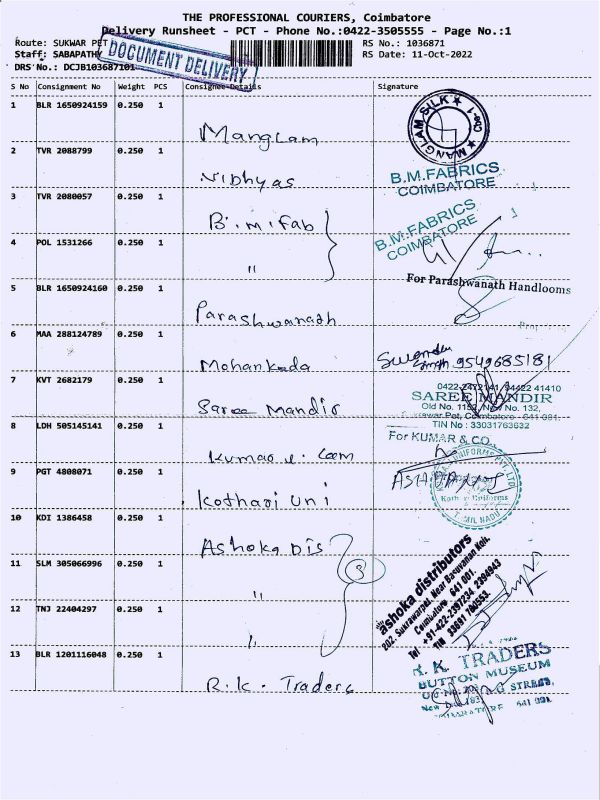 THE PROFESSIONAL COURIERS, Coimbatore
Delivery Runsheet - PCT - Phone No.:0422-3505555 - Page No.:1
Route: SUKWAR PET
RS No.: 1036871
Staff: SABAPATHY
RS Date: 11-Oct-2022
DRS No.: DCJB103687101
DOCUMENT DELIVERY
S No Consignment No Weight PCS Consignee Details Signature
1 BLR 1650924159 0.250 1
Manglam
MANGLAM SILK ★ CBE-1 ★
2 TVR 2088799 0.250 1
Vibhyas
B.M.FABRICS
COIMBATORE
3 TVR 2080057 0.250 1
B.M.Fab
B.M.FABRICS
COIMBATORE
4 POL 1531266 0.250 1
"
5 BLR 1650924160 0.250 1
Parashwanath
For Parashwanath Handlooms
6 MAA 288124789 0.250 1
Mohankada
9549685181
7 KVT 2682179 0.250 1
Saree Mandir
SAREE MANDIR
TIN No : 33031763632
8 LDH 505145141 0.250 1
For KUMAR & CO.,
9 PGT 4808071 0.250 1
Kothari Uni
10 KDI 1386458 0.250 1
Ashoka Dis
3
11 SLM 305066996 0.250 1
"
ashoka distributors
202, Sukrawarpet, Near Basuvanan Koil,
Coimbatore 641 001.
12 TNJ 22404297 0.250 1
"
13 BLR 1201116048 0.250 1
R.K. Traders
R. K. TRADERS
BUTTON MUSEUM